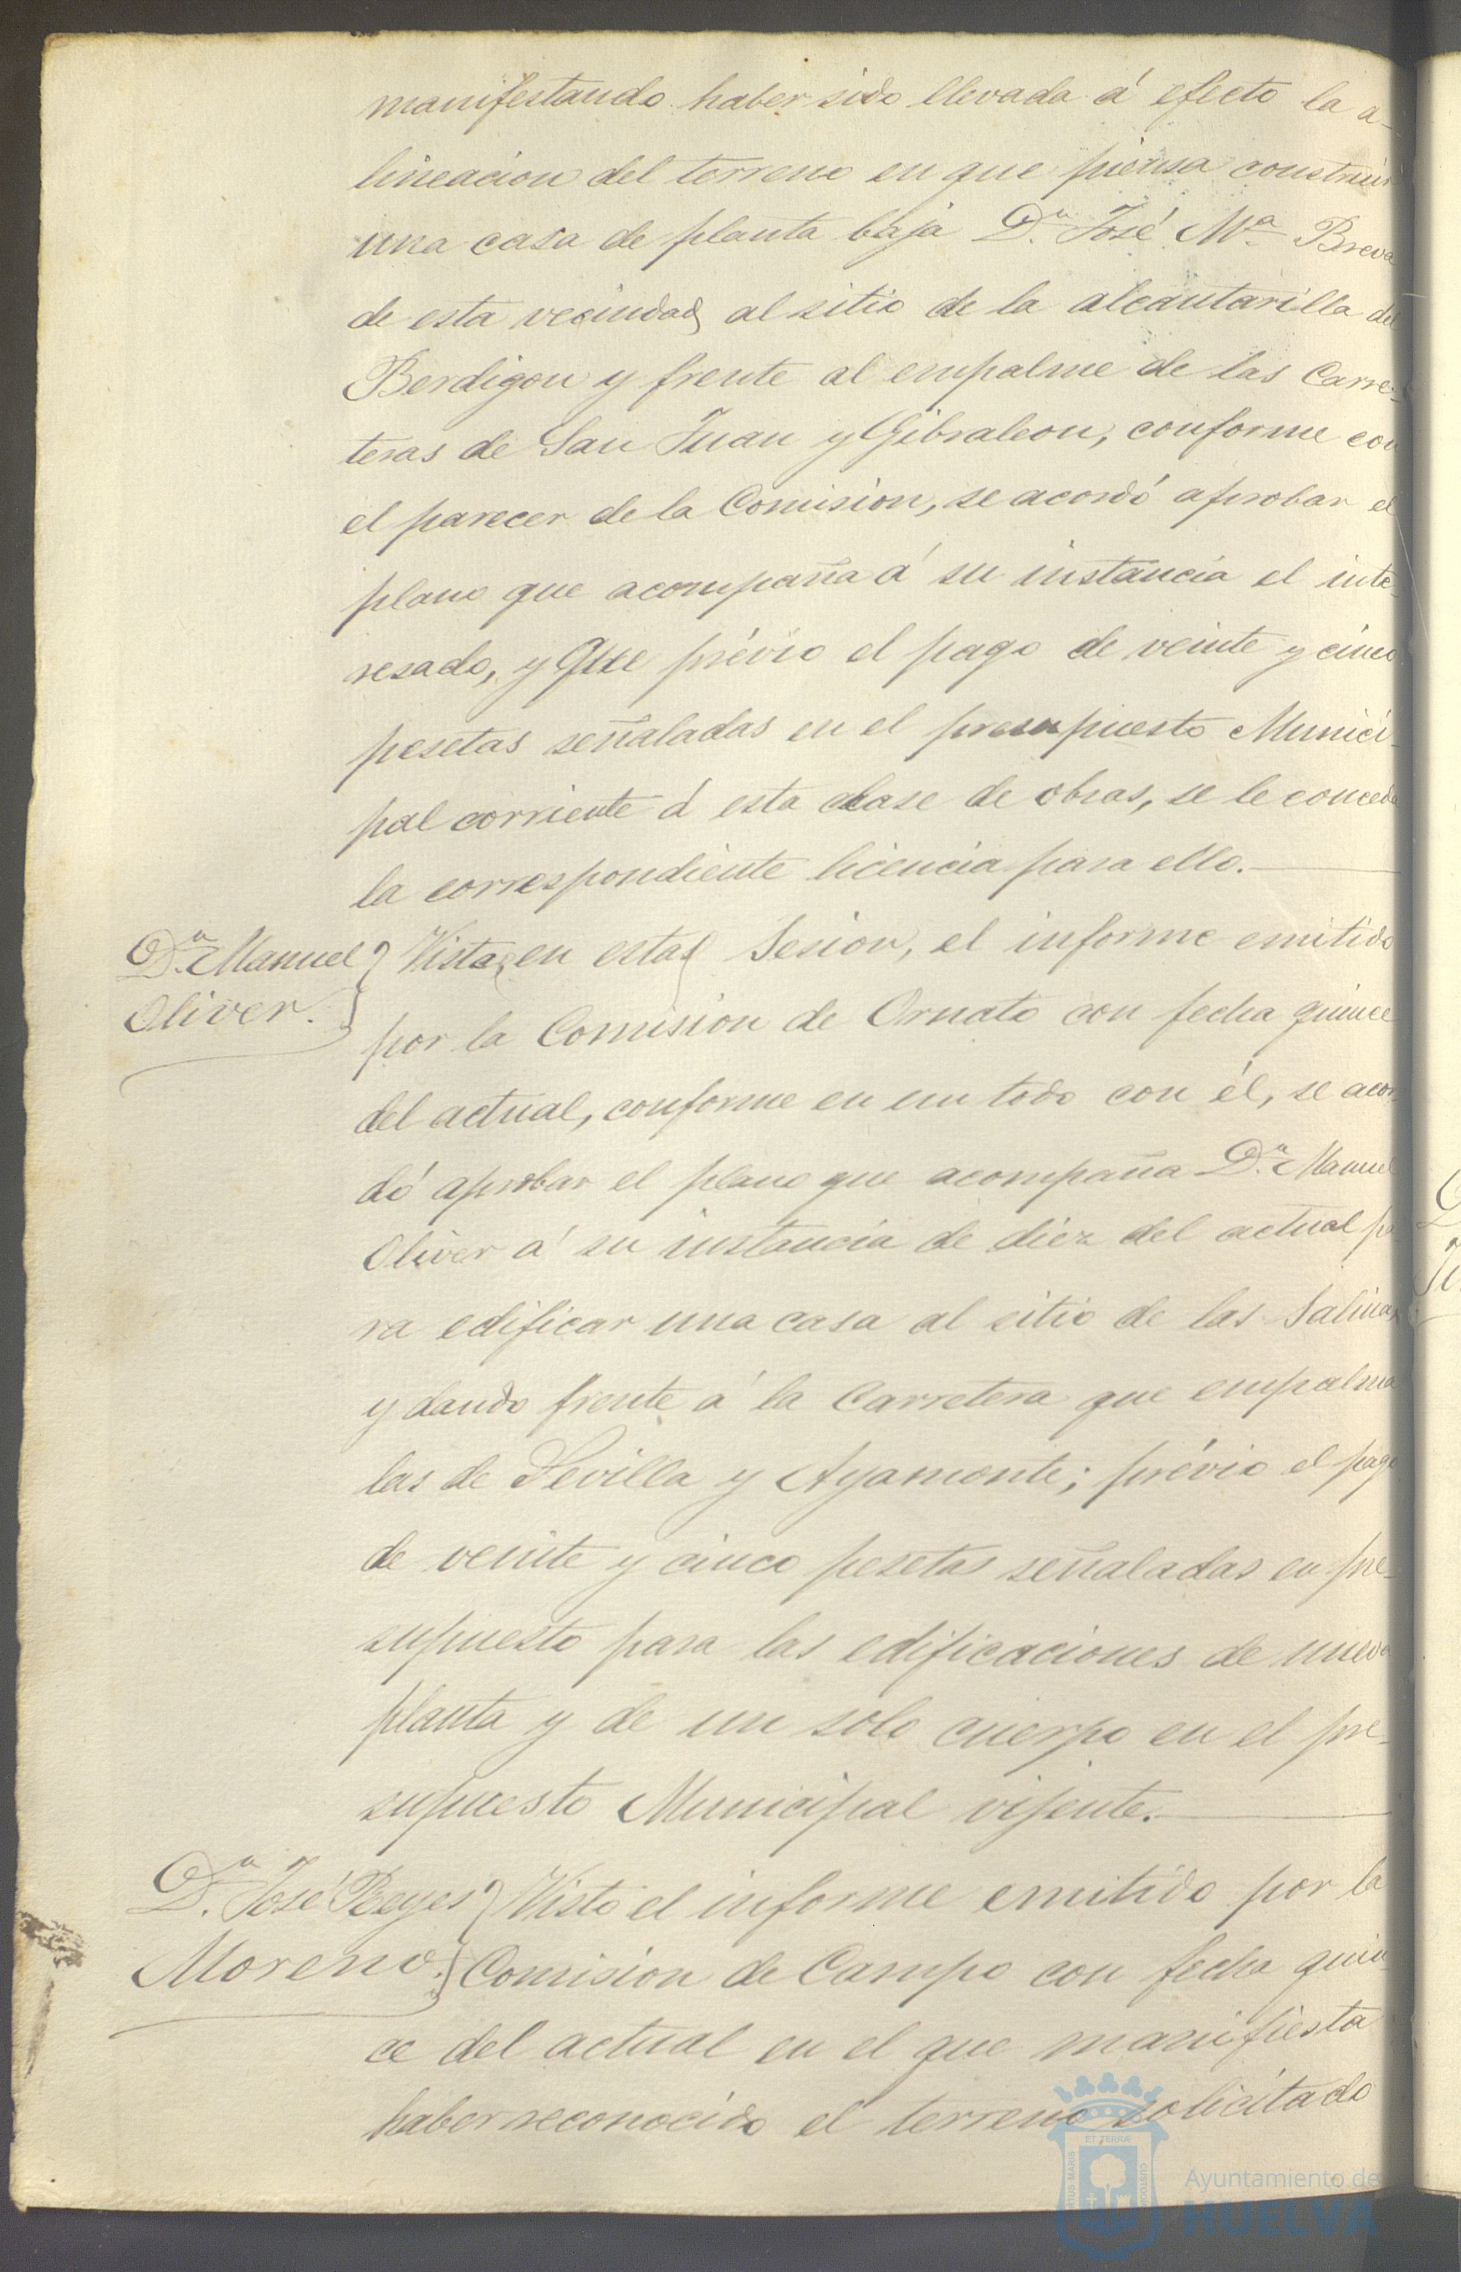 manifestando haber sido llevada á efecto la a-
lineacion del terreno en que piensa construir
una casa de planta baja D.n José M.a Breva
de esta vecindad, al sitio de la alcantarilla del
Berdigon y frente al empalme de las Carre-
teras de San Juan y Gibraleon, conforme con
el parecer de la Comision, se acordó aprobar el
plano que acompaña á su instancia el inte-
resado, y que prévio el pago de veinte y cinco
pesetas señaladas en el presupuesto Munici-
pal corriente á esta clase de obras, se le conceda
la correspondiente licencia para ello.
D.n Manuel
Oliver.
Visto, en esta Sesion, el informe emitido
por la Comision de Ornato con fecha quince
del actual, conforme en un todo con él, se acor
dó aprobar el plano que acompaña D.n Manuel
Oliver á su instancia de diez del actual pa
ra edificar una casa al sitio de las Salinas
y dando frente á la Carretera que empalma
las de Sevilla y Ayamonte; prévio el pago
de veinte y cinco pesetas señaladas en pre-
supuesto para las edificaciones de nueva
planta y de un solo cuerpo en el pre-
supuesto Municipal vijente.
D.n José Reyes
Moreno.
Visto el informe emitido por la
Comision de Campo con fecha quin-
ce del actual en el que manifiesta
haber reconocido el terreno solicitado
ET TERRÆ
PORTUS MARIS
CUSTODIA
Ayuntamiento de
HUELVA